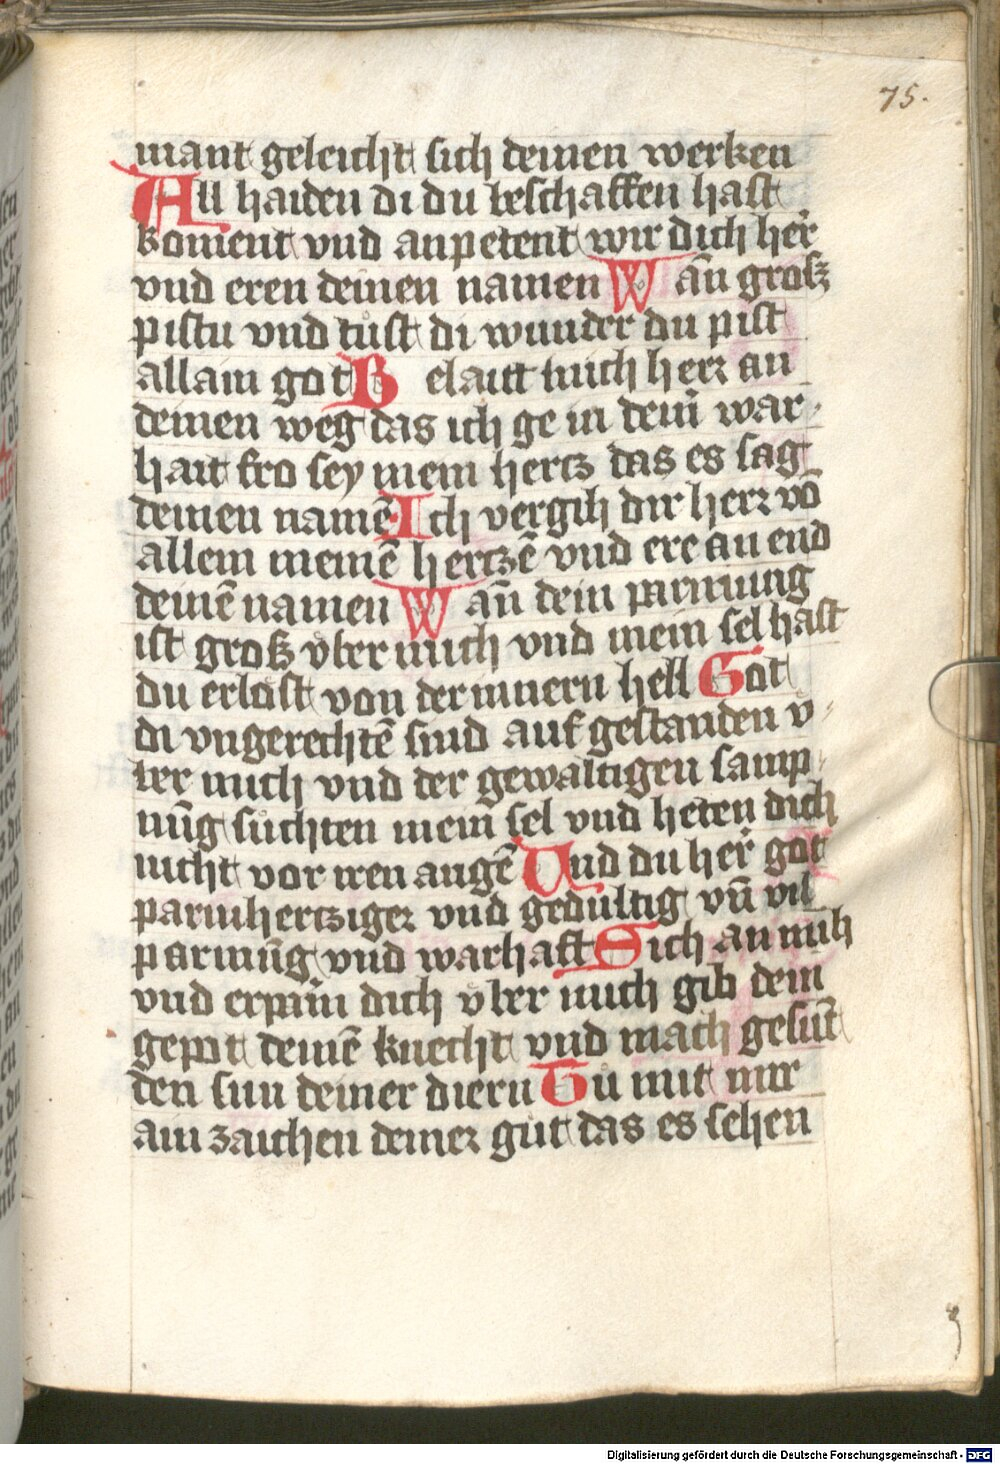 75.
mant geleicht sich deinen werken
All haiden di du beschaffen hast
koment vnd anpetent wir dich her̄
vnd eren deinen namen Wan̄ grosz
pistu vnd tůst di wunder du pist
allain got Belaitt mich herr an
deinen weg das ich ge in deiner war-
hait fro sey mein hertz das es sag
deinen namē Ich vergih dir herr vō
allem meinē hertzē vnd ere an end
deinē namen Wan̄ dein parmung
ist grosz vͦber mich vnd mein sel hast
du erlost von der innern hell Got
di vngerechtē sind auf gestanden vͦ-
ber mich vnd der gewaltigen samp-
nūg sůchten mein sel vnd heten dich
nicht vor iren augē Und du her̄ got
parmhertziger vnd gedultig vn̄ vil
parmūg vnd warhaft Sich an mih
vnd erparm̄ dich vͦber mich gib dein
gepot deinē knecht vnd mach gesūt
den sun deiner diern Tů mit mir
ain zaichen deiner gůt das es sehen
Digitalisierung gefördert durch die Deutsche Forschungsgemeinschaft - DFG